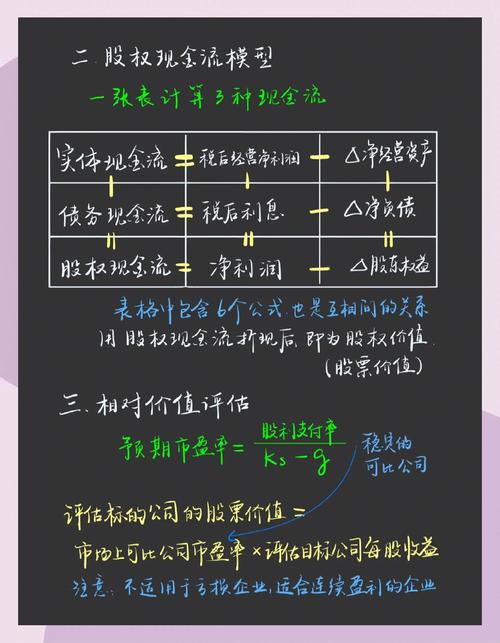 二.股权现金流模型
一张表计算3种现金流
实体现金流 = 税后经营净利润 - △净经营资产
- - -
债务现金流 = 税后利息 - △净负债
= = =
股权现金流 = 净利润 - △股东权益
表格中包含6个公式.也是互相间的关系
用股权现金流折现后,即为股权价值.
(股票价值)
三.相对价值评估
预期市盈率 = 股利支付率
Ks-g
稳具的
可比公司
评估标的公司的股票价值 =
市场上可比公司市盈率×评估目标公司每股收益
注意:不适用于亏损企业,适合连续盈利的企业